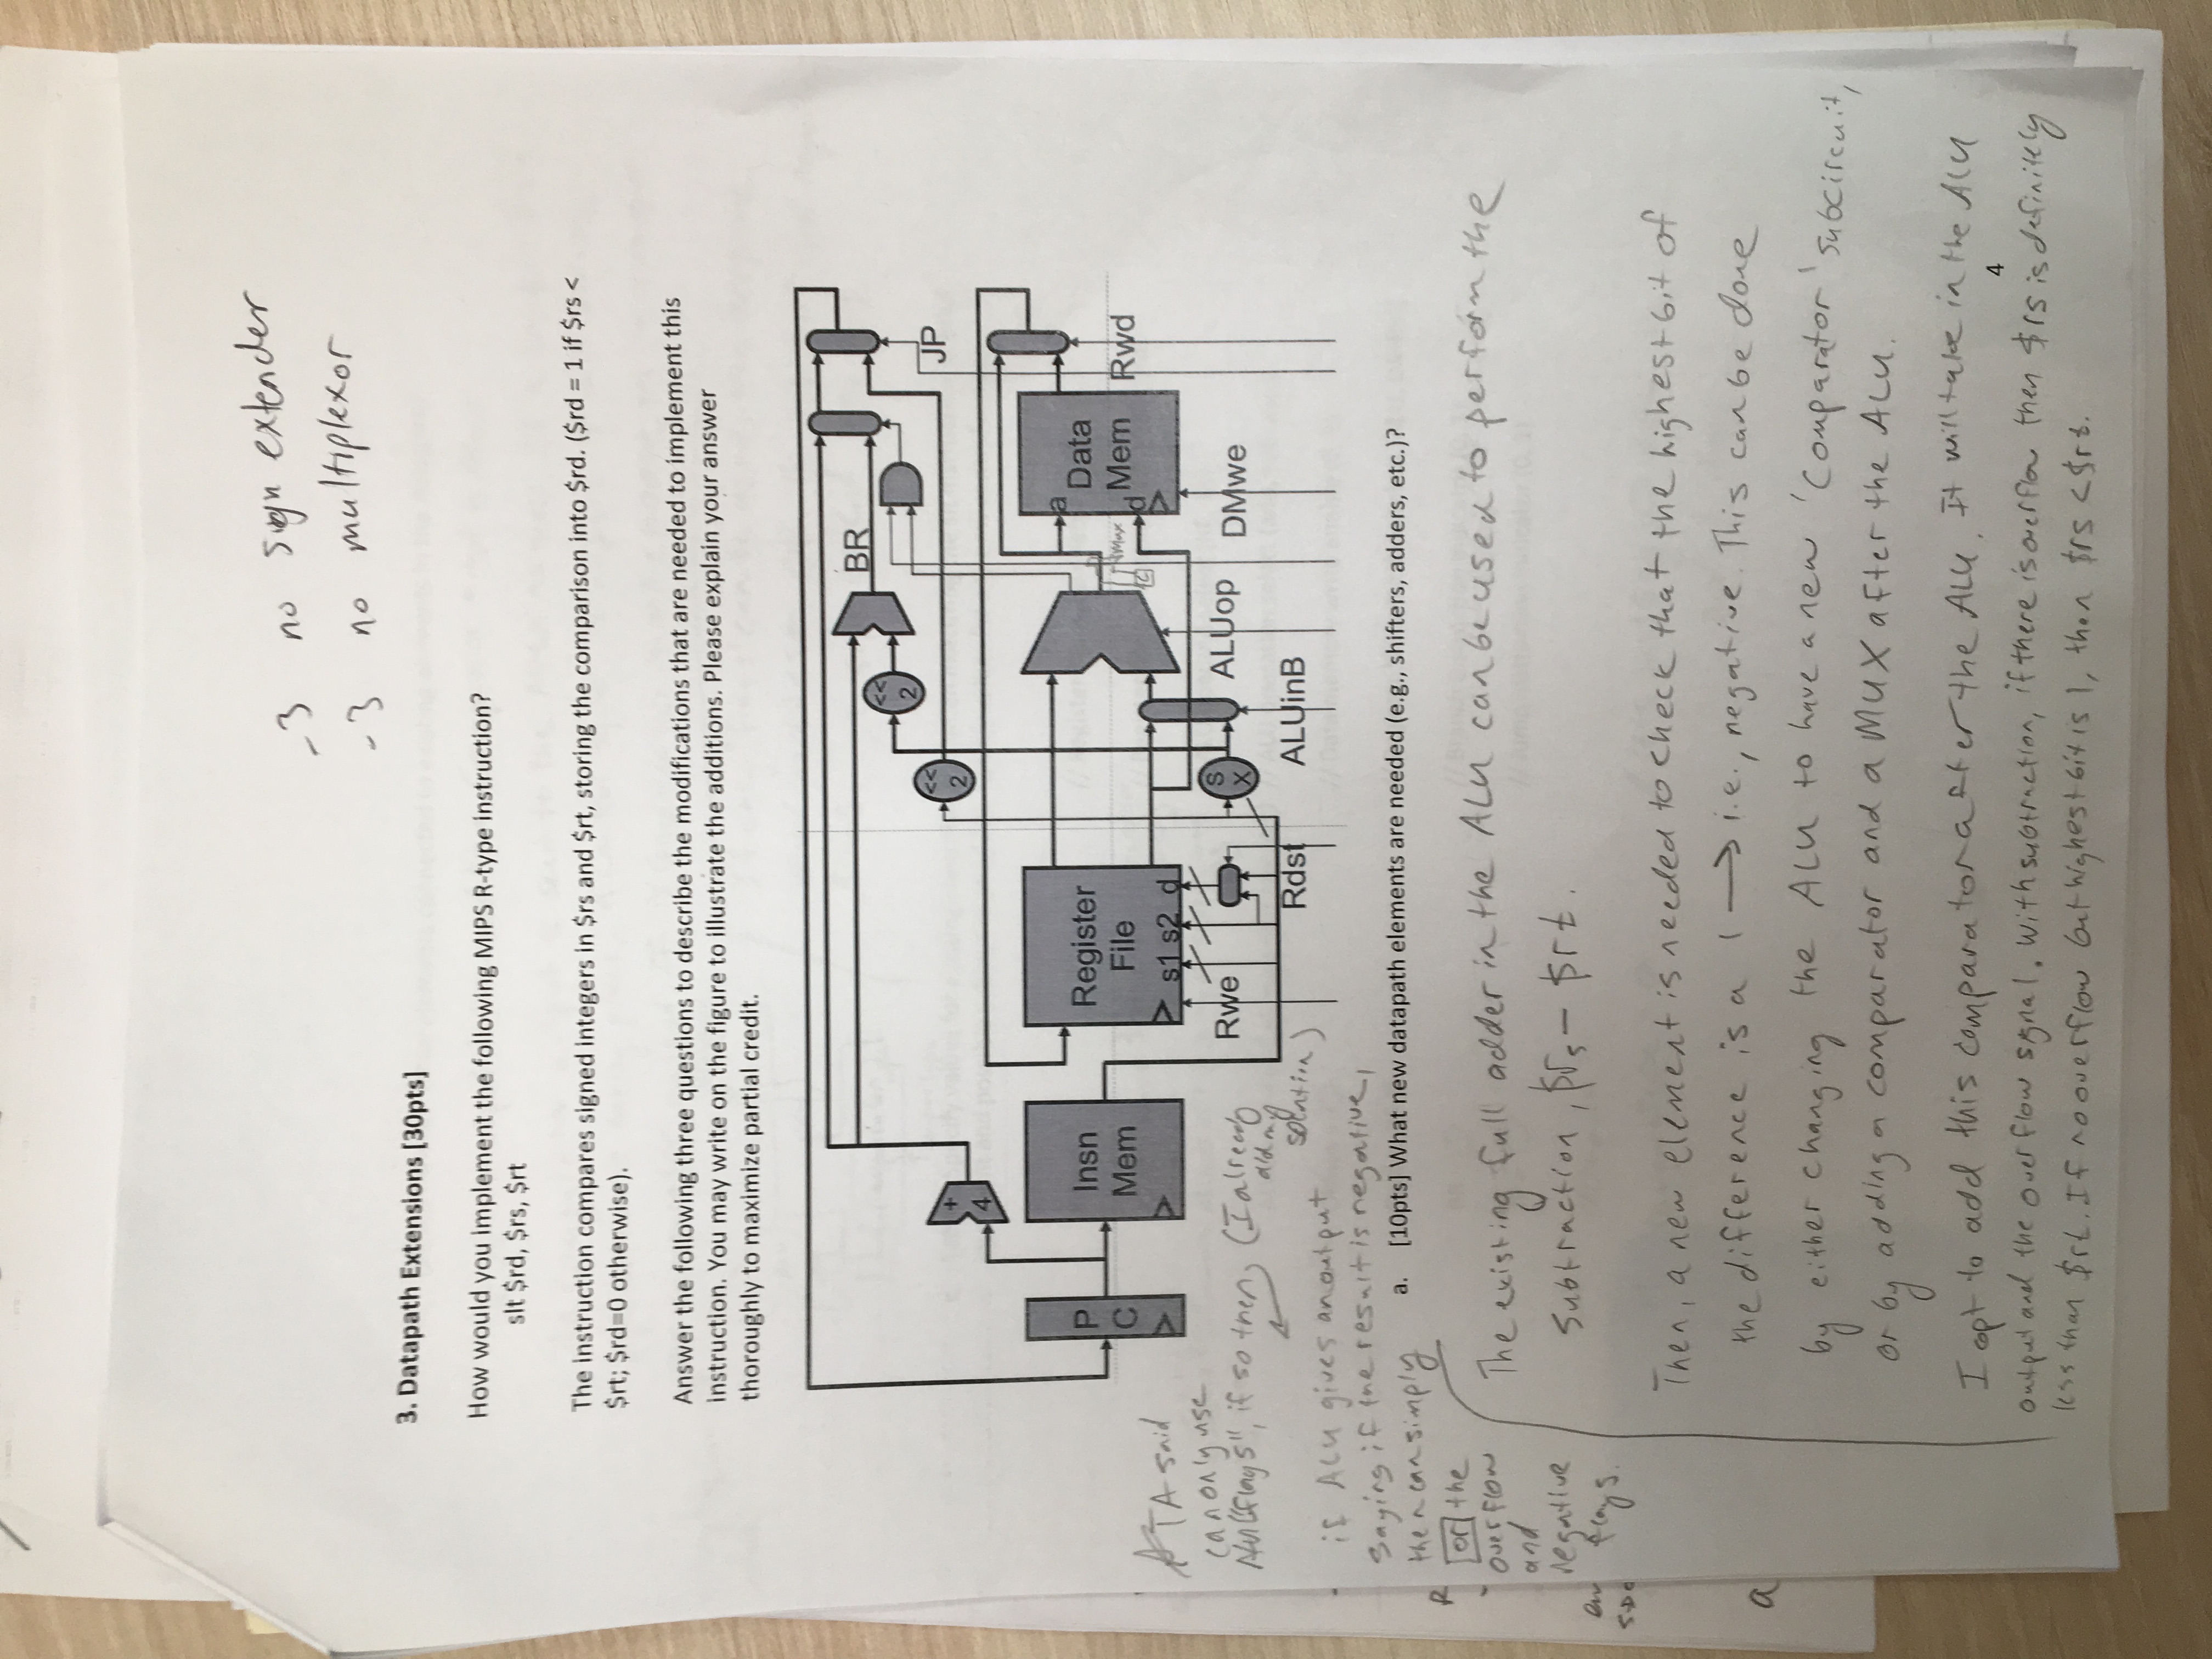 -3 no sign extender
-3 no multiplexor
3. Datapath Extensions [30pts]
How would you implement the following MIPS R-type instruction?
slt $rd, $rs, $rt
The instruction compares signed integers in $rs and $rt, storing the comparison into $rd. ($rd = 1 if $rs <
$rt; $rd=0 otherwise).
Answer the following three questions to describe the modifications that are needed to implement this
instruction. You may write on the figure to illustrate the additions. Please explain your answer
thoroughly to maximize partial credit.
BR
<<
2
<<
2
JP
+
4
P
C
Insn
Mem
Register
File
s1 s2 d
a
Data
Mem
d
C
Rwd
Rwe
S
X
ALUop
DMwe
Rdst
ALUinB
TA said
can only use
ALU "flags", if so then, (I already
did my
solution)
if ALU gives an output
saying if the result is negative,
then can simply
or the
overflow
and
negative
flags.
a. [10pts] What new datapath elements are needed (e.g., shifters, adders, etc.)?
The existing full adder in the ALU can be used to perform the
subtraction, $rs - $rt.
Then, a new element is needed to check that the highest bit of
the difference is a 1 → i.e., negative. This can be done
by either changing the ALU to have a new 'Comparator' subcircuit,
or by adding a comparator and a MUX after the ALU.
I opt to add this comparator after the ALU. It will take in the ALU
4
output and the overflow signal. With subtraction, if there is overflow then $rs is definitely
less than $rt. If no overflow but highest bit is 1, then $rs < $rt.